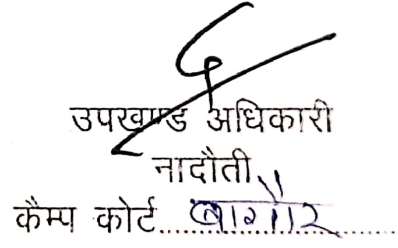 उपखण्ड अधिकारी
नादौती
कैम्प कोर्ट......बागौर......